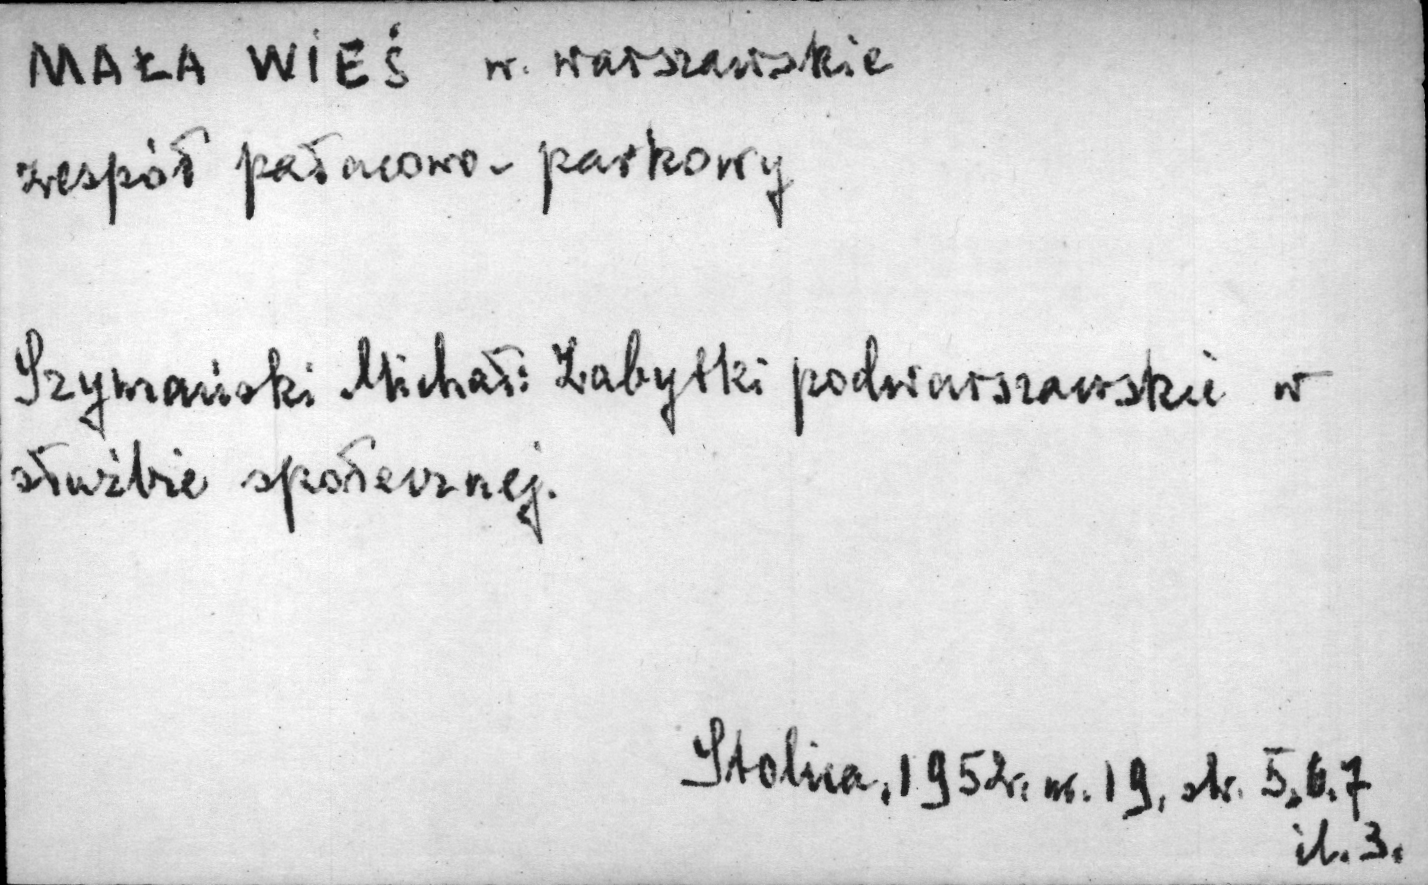 MAŁA WIEŚ w. warszawskie
zespół pałacowo-parkowy
Szymański Michał: Zabytki podwarszawskie w
służbie społecznej.
Stolica, 1952r. nr. 19, str. 5,6,7
il. 3.